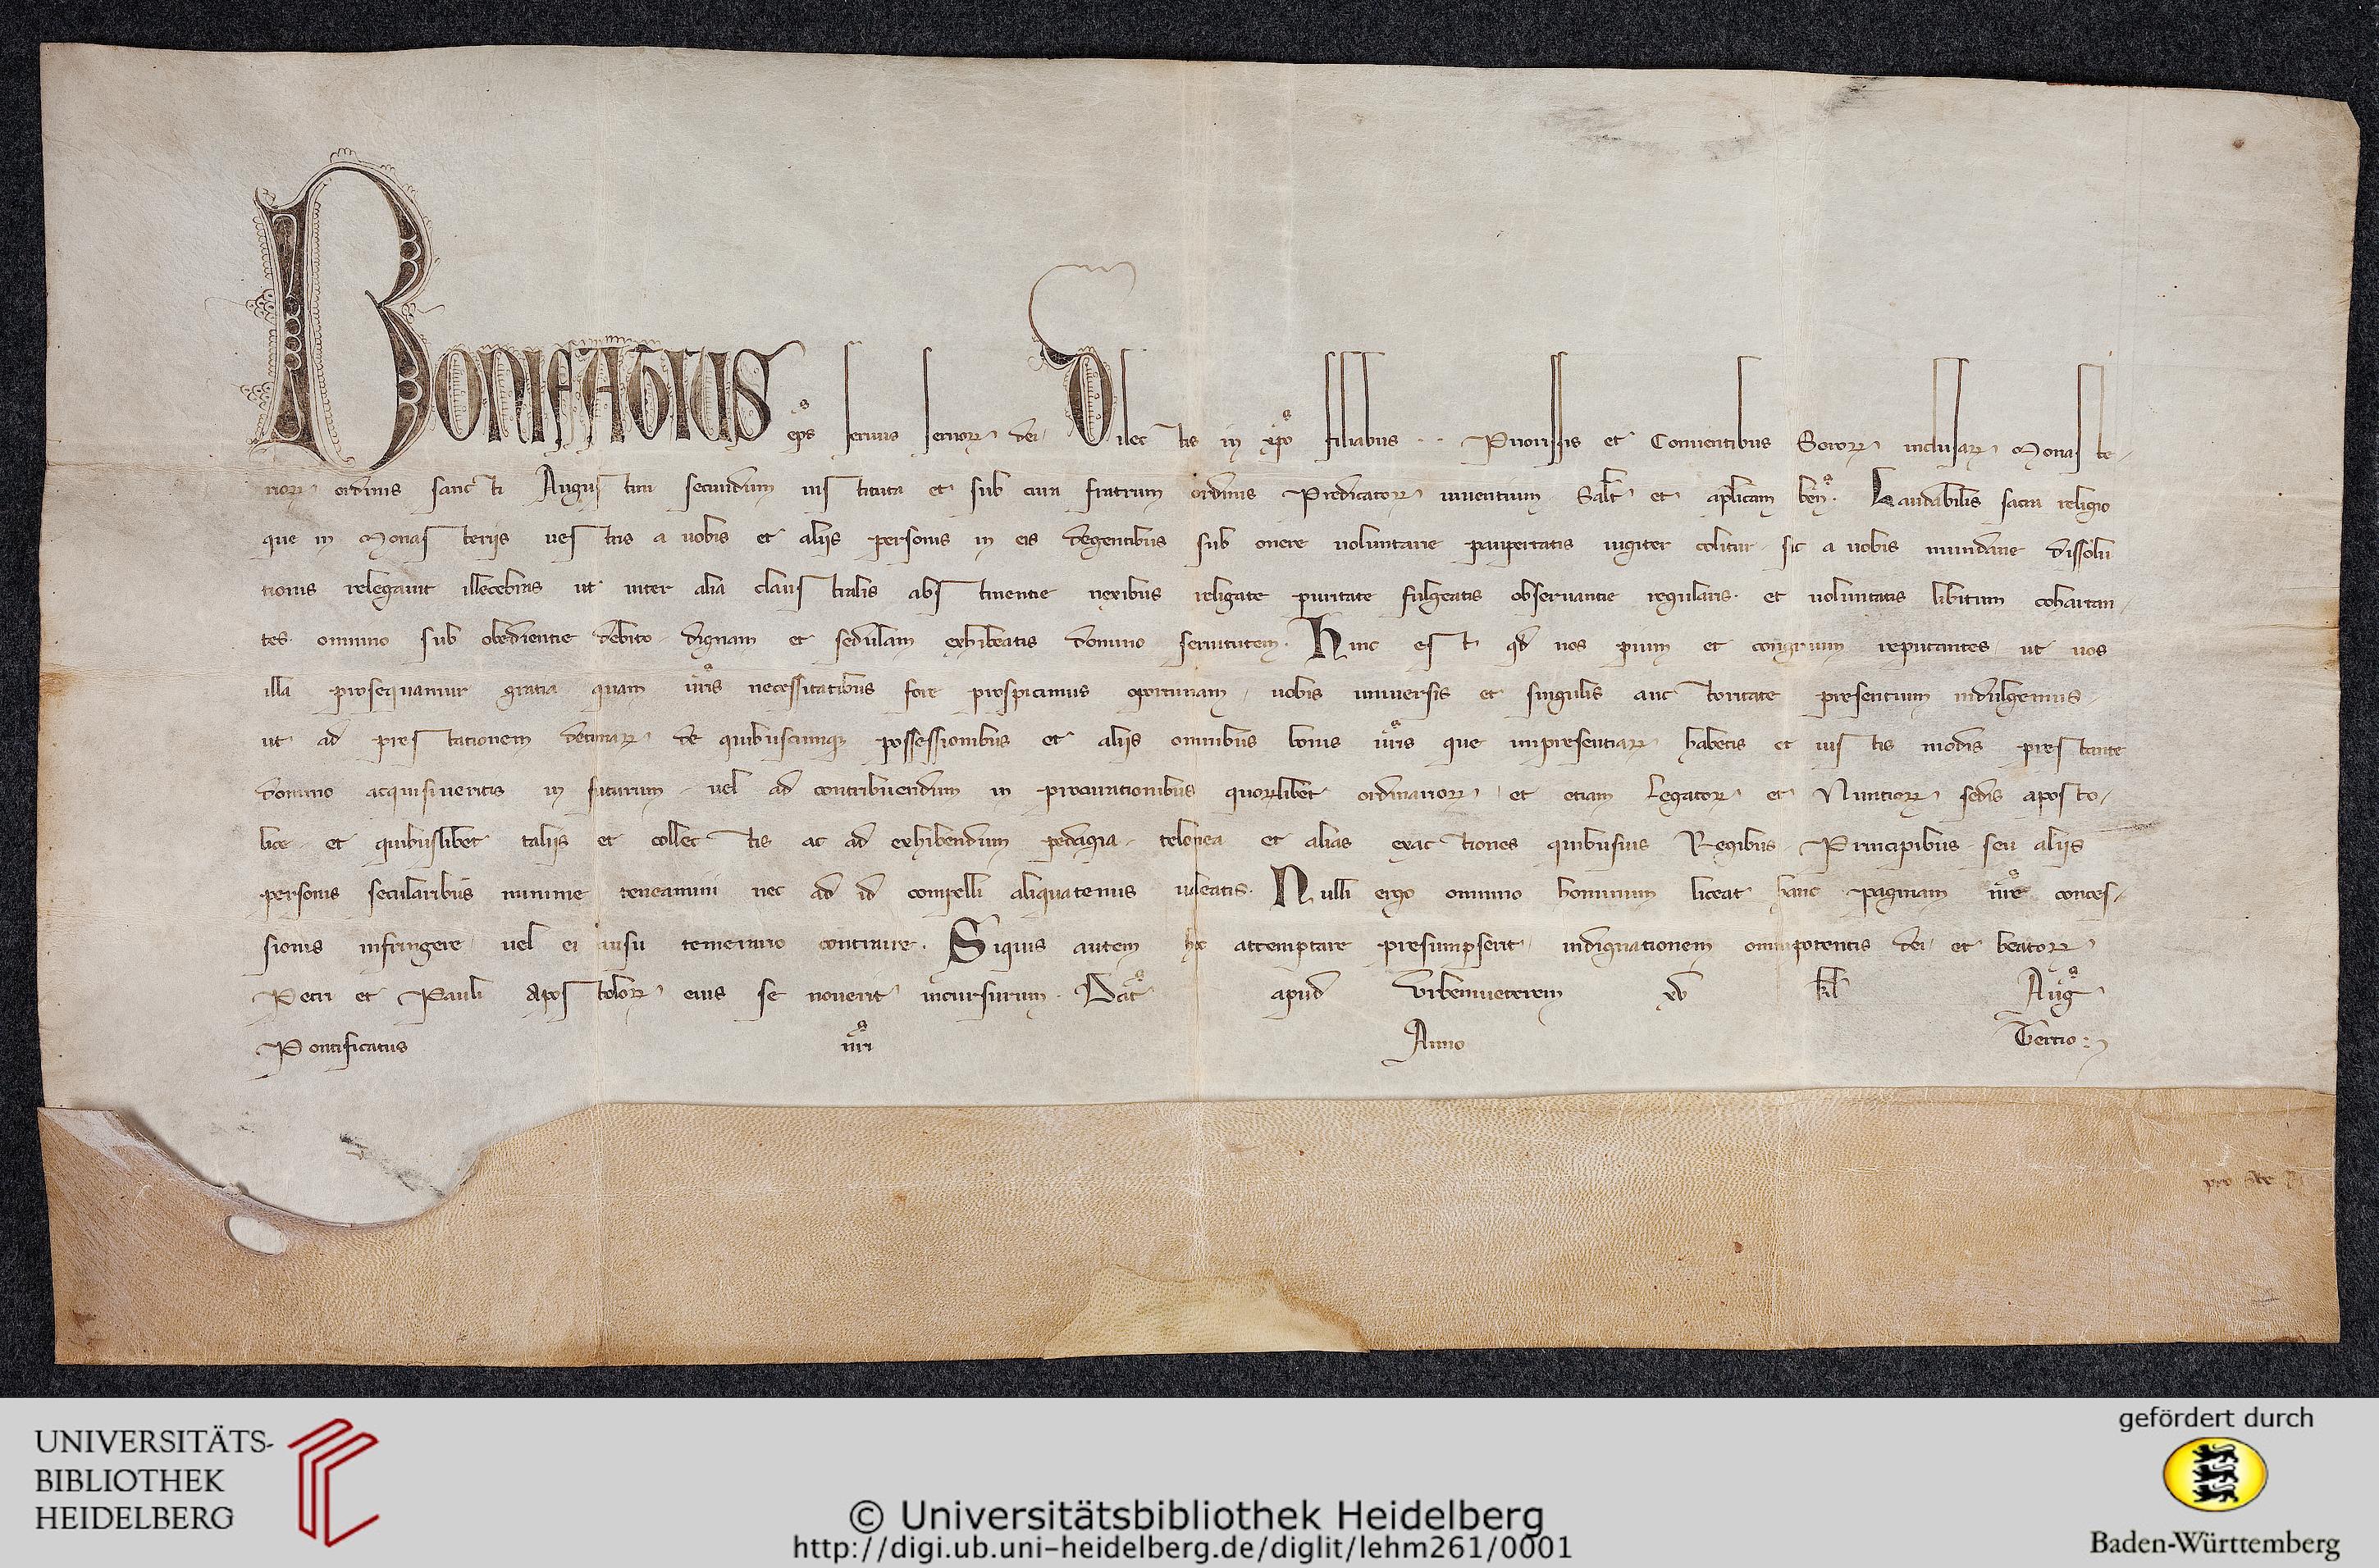 BONIFATIUS ep̄s seruus seruoꝝ dei. Dilectis in xp̄o filiabus .. Priorissis et Conuentibus Sororꝝ inclusaꝝ Monaste-
rioꝝ ordinis sancti Augustini secundum instituta et sub cura fratrum ordinis Predicatoꝝ uiuentium Salt̄ et ap̄licam ben̄. Laudabilis sacra religio
que in Monasteriis uestris a uobis et aliis personis in eis degentibus sub onere uoluntarie paupertatis iugiter colitur. sic a uobis mundane dissolu
tionis relegauit illecebras ut inter alia claustralis abstinentie nexibus religate puritate fulgeatis obseruantie regularis. et uoluntatis libitum cohartan-
tes omnino sub obedientie debito. dignam et sedulam exhibeatis domino seruitutem. Hinc est qd̄ nos pium et congruum reputantes, ut uos
illa prosequamur gratia quam ur̄is necessitatibus fore prospicimus oportunam, uobis uniuersis et singulis auctoritate presentium indulgemus,
ut ad prestationem decimaꝝ de quibuscumqꝫ possessionibus et aliis omnibus bonis ur̄is que inpresentiaꝝ habetis et iustis modis prestante
domino acquisiueritis in futurum, uel ad contribuendum in procurationibus quoꝝlibet ordinarioꝝ, et etiam Legatoꝝ et Nuntioꝝ sedis aposto-
lice, et quibuslibet taliis et collectis ac ad exhibendum pedagia, telonea et alias exactiones quibusuis Regibus Principibus seu aliis
personis secularibus minime teneamini nec ad id compelli aliquatenus ualeatis. Nulli ergo omnino hominum liceat hanc paginam nr̄e conces-
sionis infringere, uel ei ausu temerario contraire. Siquis autem hoc attemptare presumpserit, indignationem omnipotentis dei, et beatoꝝ
Petri et Pauli Apostoloꝝ eius se nouerit incursurum. Dat̄ apud Urbemueterem xv kl̄ Auḡ
Pontificatus nr̄i Anno Tertio:
UNIVERSITÄTS-
BIBLIOTHEK
HEIDELBERG
© Universitätsbibliothek Heidelberg
http://digi.ub.uni-heidelberg.de/diglit/lehm261/0001
gefördert durch
Baden-Württemberg